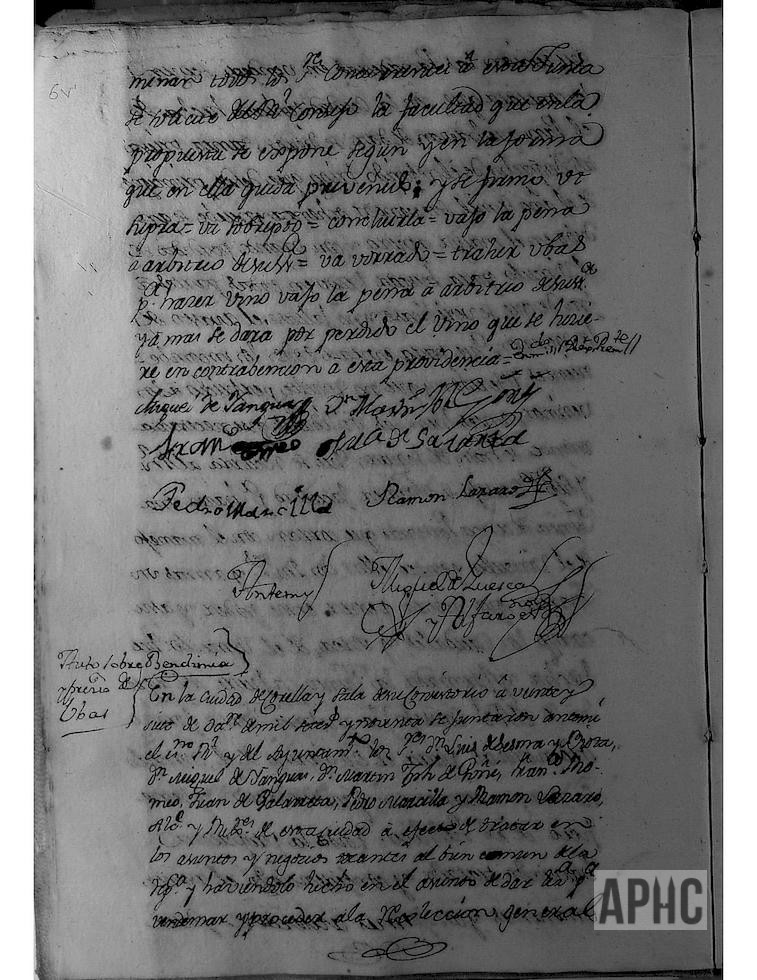 6v
menar todos los concurrentes a esta Junta
se solicite del Rl Consejo la facultad que en la
propuesta se expone segun y en la forma
que en ella queda prevenido; y se firmo
= va sobrepto = concluirla = vajo la pena
a arbitrio de = va vorrado = traher vbas
pa hazer vino vajo la pena a arbitrio de
y a mas se dara por perdido el vino que se hizie-
re en contrabencion a esta providencia =
Miguel de Yanguas Dn Martin
Fran
de Galarreta
Pedro Marcilla Ramon Lazaro
Ante my Miguel de Luesca
y Alfaro
Auto sobre Bendimia
y precio de
Ubas
En la ciudad de Corella y Sala de su Consistorio a veinte y
siete de de mil setezs y noventa se juntaron ante mi
el sno Rl y del Ayuntamto los Ses Dn Luis de Sesma y
Dn Miguel de Yanguas, Dn Martin Jph de Goñi, Franco Ro-
meo, Juan de Galarreta, Pedro Marcilla y Ramon Lazaro,
Alce y Rexres de esta ciudad a efecto de tratar en
los asuntos y negocios tocantes al bien comun de la
Rpca y haviendolo hecho en el asunto de dar pa
vendimar y proceder a la Recoleccion general
APHC